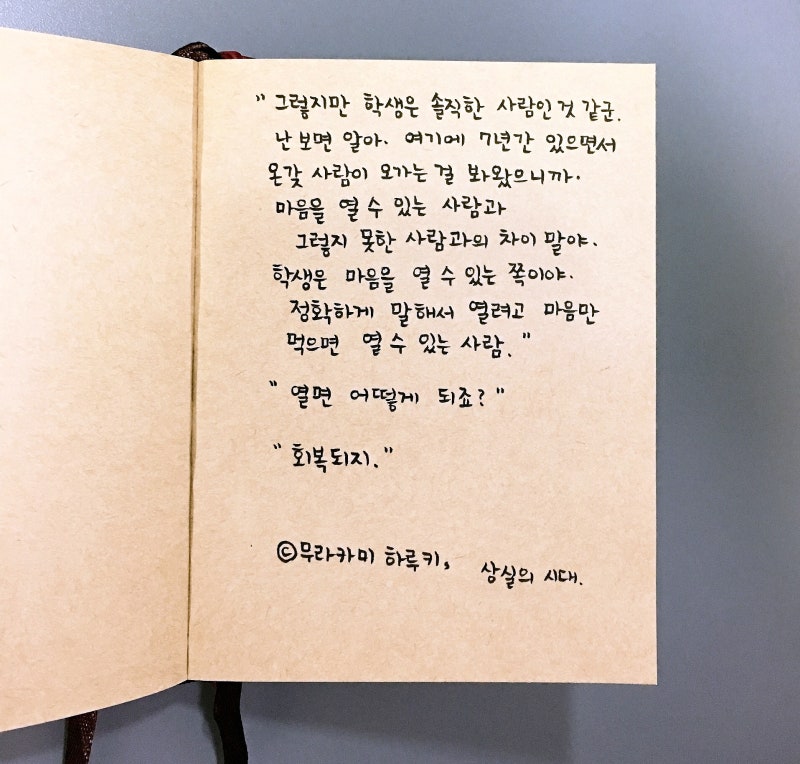 " 그렇지만 학생은 솔직한 사람인 것 같군.
난 보면 알아. 여기에 7년간 있으면서
온갖 사람이 오가는 걸 봐왔으니까.
마음을 열 수 있는 사람과
그렇지 못한 사람과의 차이 말야.
학생은 마음을 열 수 있는 쪽이야.
정확하게 말해서 열려고 마음만
먹으면 열 수 있는 사람. "
" 열면 어떻게 되죠? "
" 회복되지. "
©무라카미 하루키, 상실의 시대.